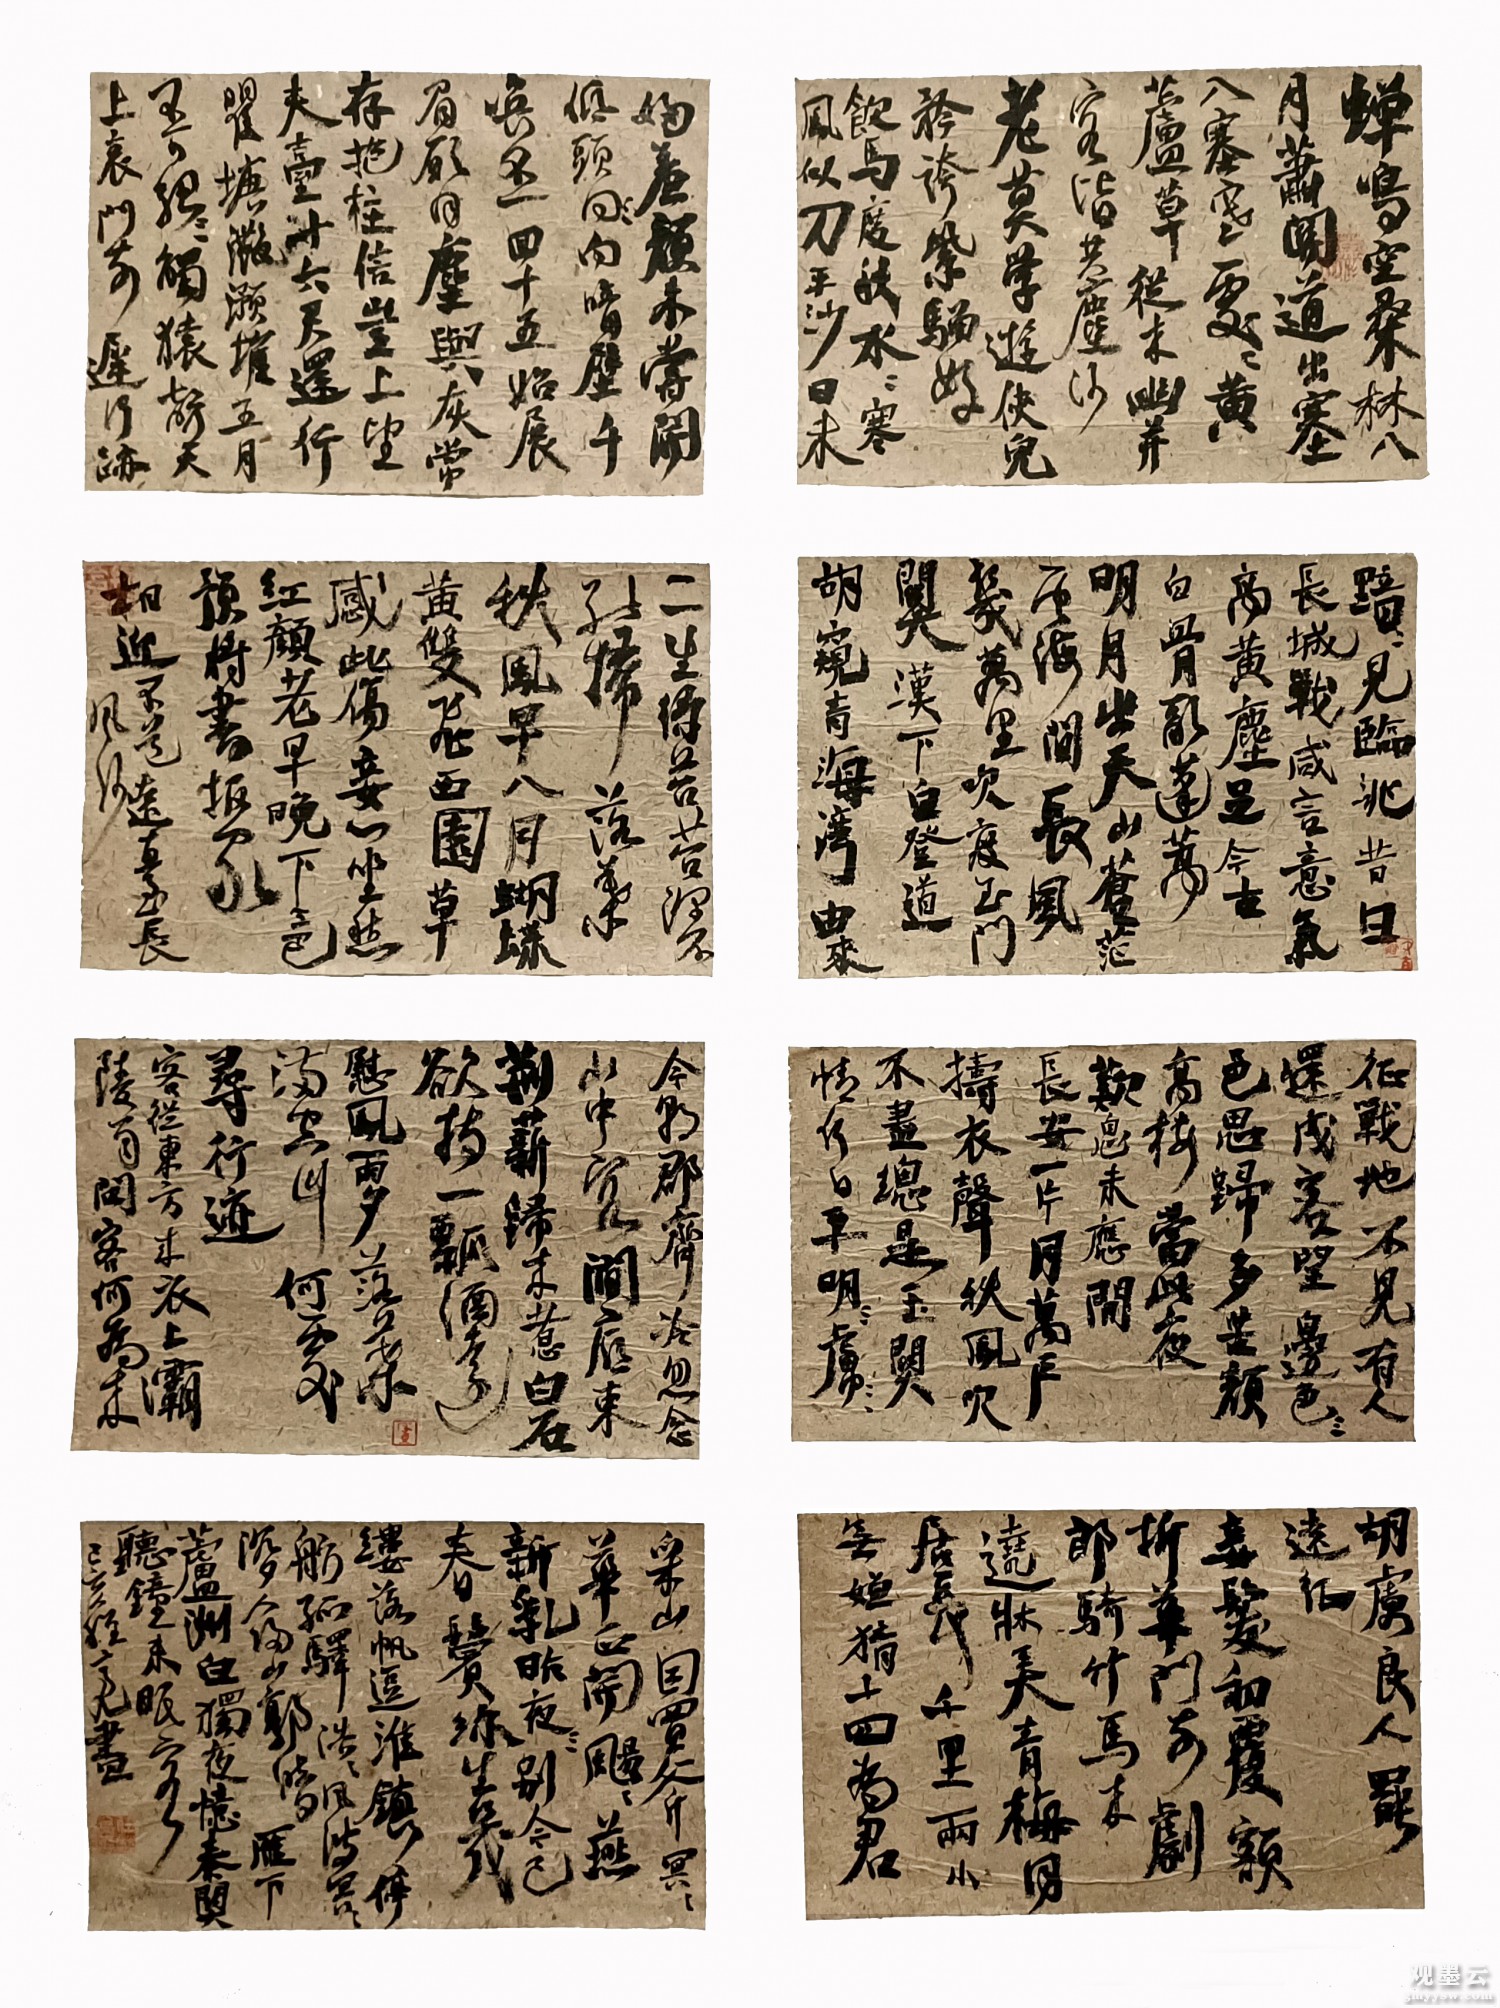 蟬鳴空桑林八
月蕭關道出塞
入塞寒處〻黃
蘆草從来幽并
客皆共塵沙
老莫學遊俠兒
矜誇紫騮好
飲馬度秋水〻寒
風似刀平沙日未
黯〻見臨洮昔日
長城戰咸言意氣
高黃塵足今古
白骨亂蓬蒿
明月出天山蒼茫
雲海間長風
幾萬里吹度玉門
關漢下白登道
胡窺青海灣由來
征戰地不見有人
還戍客望邊色〻
色思歸多苦顏
高樓當此夜
歎息未應閒
長安一片月萬戶
擣衣聲秋風吹
不盡總是玉關
情何日平明〻虜〻
胡虜良人罷
遠征
妾髮初覆額
折華門前劇
郎騎竹馬来
遶牀弄青梅同
居長干里兩小
無嫌猜十四為君
婦羞顏未嘗開
低頭向〻向暗壁千
喚不一四十五始展
眉願同塵與灰常
存抱柱信豈上望
夫臺十六君遠行
瞿塘灩澦堆五月
不可觸〻猿聲天
上哀門前遲行跡
二生綠苔苔深不
能掃落葉
秋風早八月蝴蝶
黃雙飛西園草
感此傷妾心坐愁
紅顏老早晚下三巴
預將書報家
相迎不道遠直至長
風沙
今朝郡齋冷忽念
山中客澗底束
荊薪歸来煮白石
欲持一瓢酒遠
慰風雨夕落葉
滿空山何處
尋行迹
客從東方来衣上灞
陵雨問客何為来
采山因買斧冥〻
華正開颺〻燕
新乳昨夜〻別今已
春日鬢絲生幾
縷落帆逗淮鎮停
舫孤驛浩〻風波冥〻
沉人歸山郭暗雁下
蘆洲白獨夜憶秦關
聽鐘未眠客
己亥 亮書
观墨云
gmyyow.com